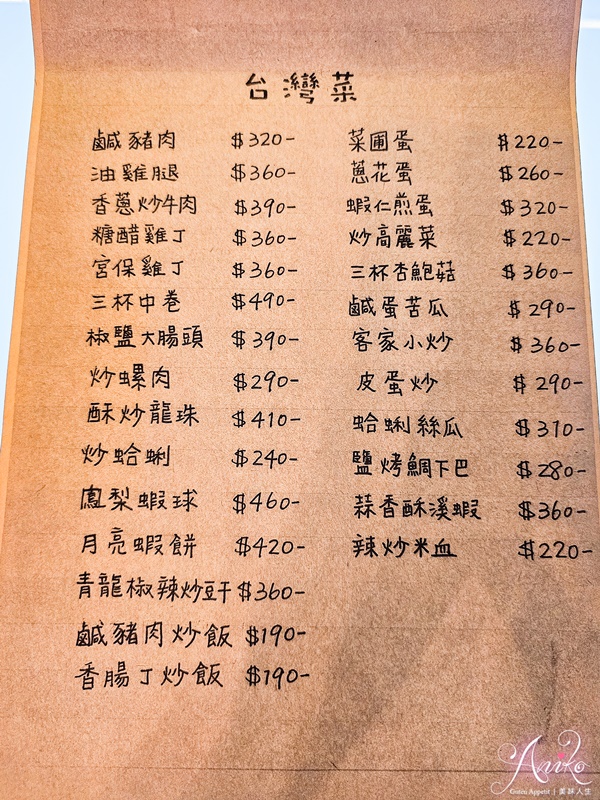 台灣菜
鹹豬肉 $320-
油雞腿 $360-
香蔥炒牛肉 $390-
糖醋雞丁 $360-
宮保雞丁 $360-
三杯中卷 $490-
椒鹽大腸頭 $390-
炒螺肉 $290-
酥炒龍珠 $410-
炒蛤蜊 $240-
鳳梨蝦球 $460-
月亮蝦餅 $420-
青龍椒辣炒豆干 $360-
鹹豬肉炒飯 $190-
香腸丁炒飯 $190-
菜圃蛋 $220-
蔥花蛋 $260-
蝦仁煎蛋 $320-
炒高麗菜 $220-
三杯杏鮑菇 $360-
鹹蛋苦瓜 $290-
客家小炒 $360-
皮蛋炒 $290-
蛤蜊絲瓜 $310-
鹽烤鯛下巴 $280-
蒜香酥溪蝦 $360-
辣炒米血 $220-
Aniko
Guten Appetit | 美味人生